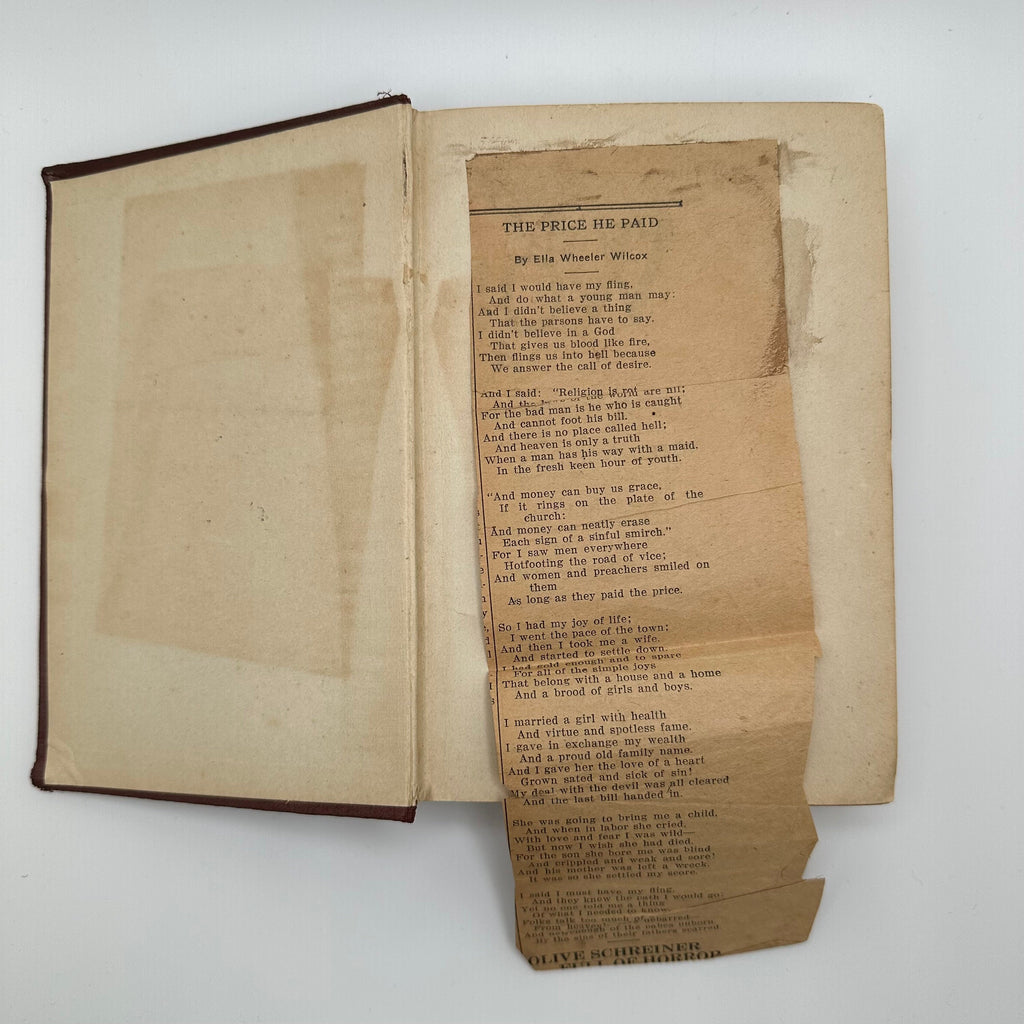 THE PRICE HE PAID
By Ella Wheeler Wilcox
I said I would have my fling,
And do what a young man may:
And I didn't believe a thing
That the parsons have to say.
I didn't believe in a God
That gives us blood like fire,
Then flings us into hell because
We answer the call of desire.
And I said: "Religion is rot are nil;
And the
For the bad man is he who is caught
And cannot foot his bill.
And there is no place called hell;
And heaven is only a truth
When a man has his way with a maid,
In the fresh keen hour of youth.
"And money can buy us grace,
If it rings on the plate of the
church:
And money can neatly erase
Each sign of a sinful smirch."
For I saw men everywhere
Hotfooting the road of vice;
And women and preachers smiled on
them
As long as they paid the price.
So I had my joy of life;
I went the pace of the town;
And then I took me a wife.
And started to settle down.
I had gold enough and to spare
For all of the simple joys
That belong with a house and a home
And a brood of girls and boys.
I married a girl with health
And virtue and spotless fame.
I gave in exchange my wealth
And a proud old family name.
And I gave her the love of a heart
Grown sated and sick of sin!
My deal with the devil was all cleared
And the last bill handed in.
She was going to bring me a child,
And when in labor she cried,
With love and fear I was wild—
But now I wish she had died.
For the son she bore me was blind
And crippled and weak and sore!
And his mother was left a wreck.
It was so she settled my score.
I said I must have my fling,
And they knew the path I would go;
Yet no one told me a thing
Of what I needed to know.
Folks talk too much
From heaven of the babes unborn
By the sins of their fathers scarred.
OLIVE SCHREINER
FULL OF HORROR